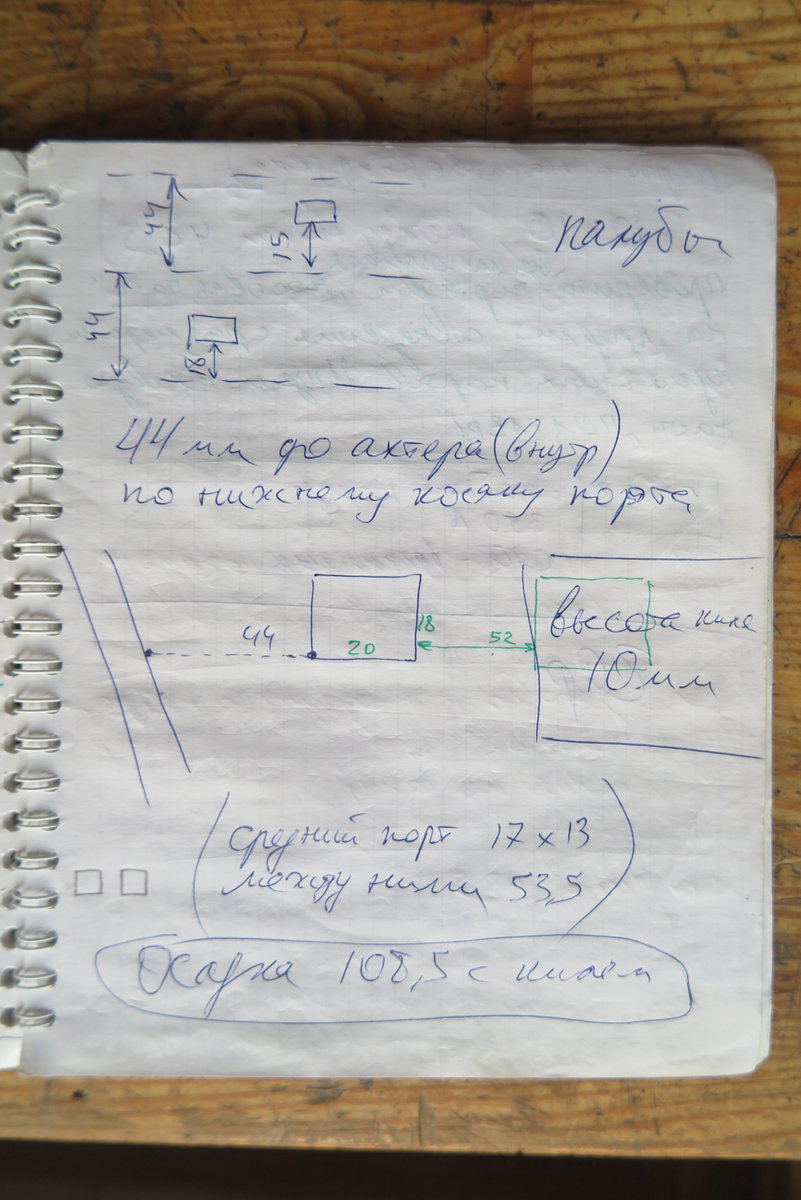 44
15
палубы
44
18
44 мм до ахтера (внутр)
по нижнему косяку порта
44
20
18
52
высота киля
10 мм
(средний порт 17 x 13
между ними 53,5)
Осадка 108,5 с килем